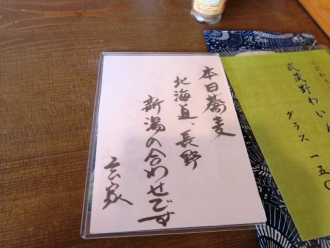 本日蕎麦
北海道、長野
新潟の合わせです
武蔵野わい
グラス 一五〇